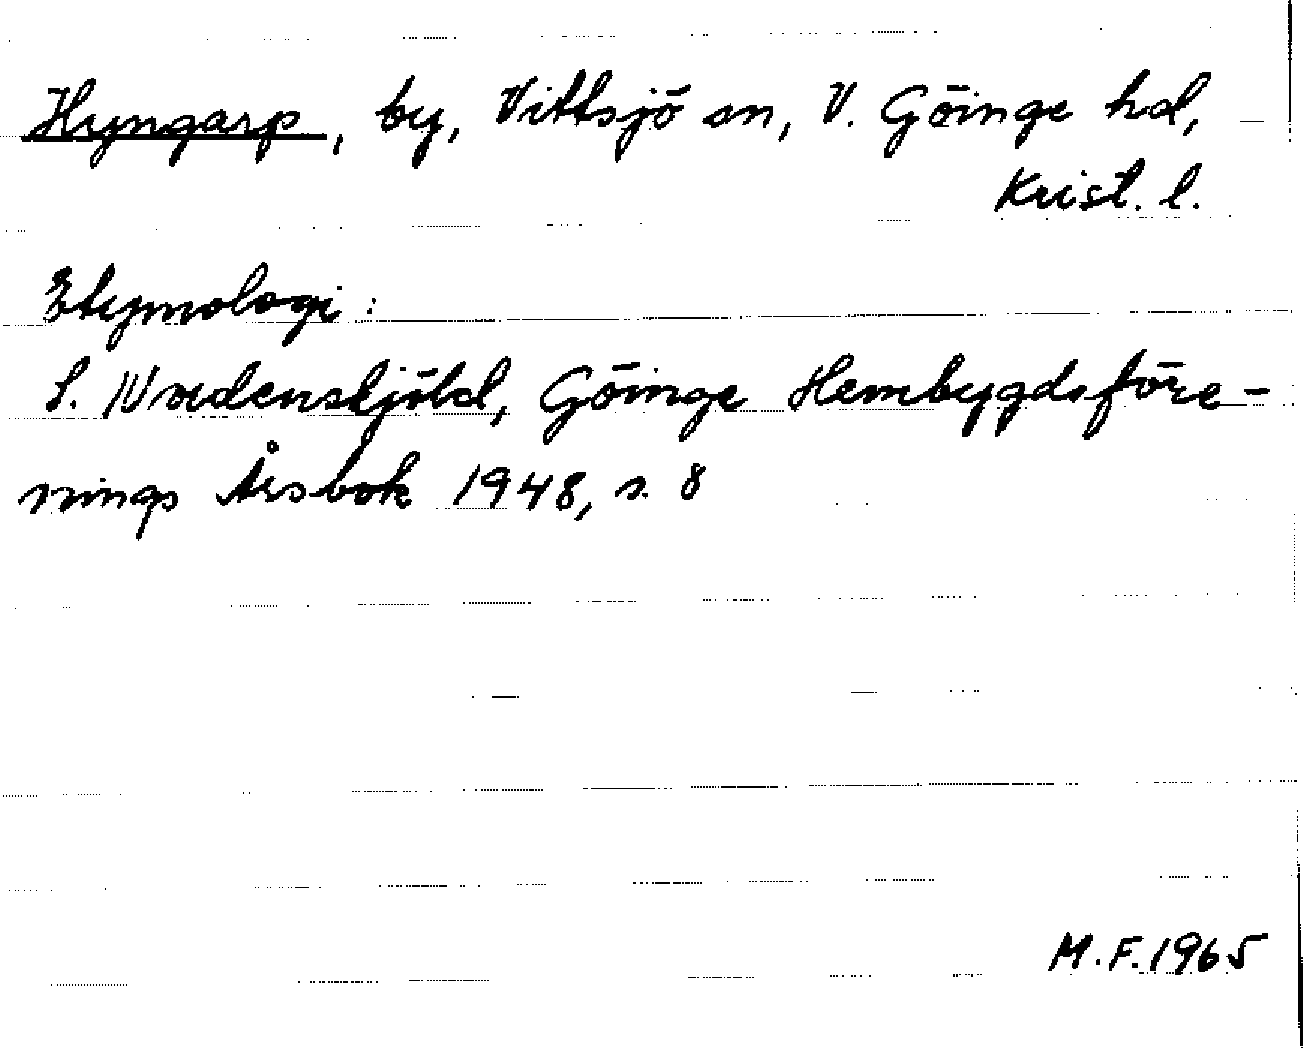 Hyngarp, by, Vittsjö sn, V. Göinge hd,
Krist. l.
Etymologi:
S. Nordenskjöld, Göinge Hembygdsföre-
nings Årsbok 1948, s. 8
M.F. 1965